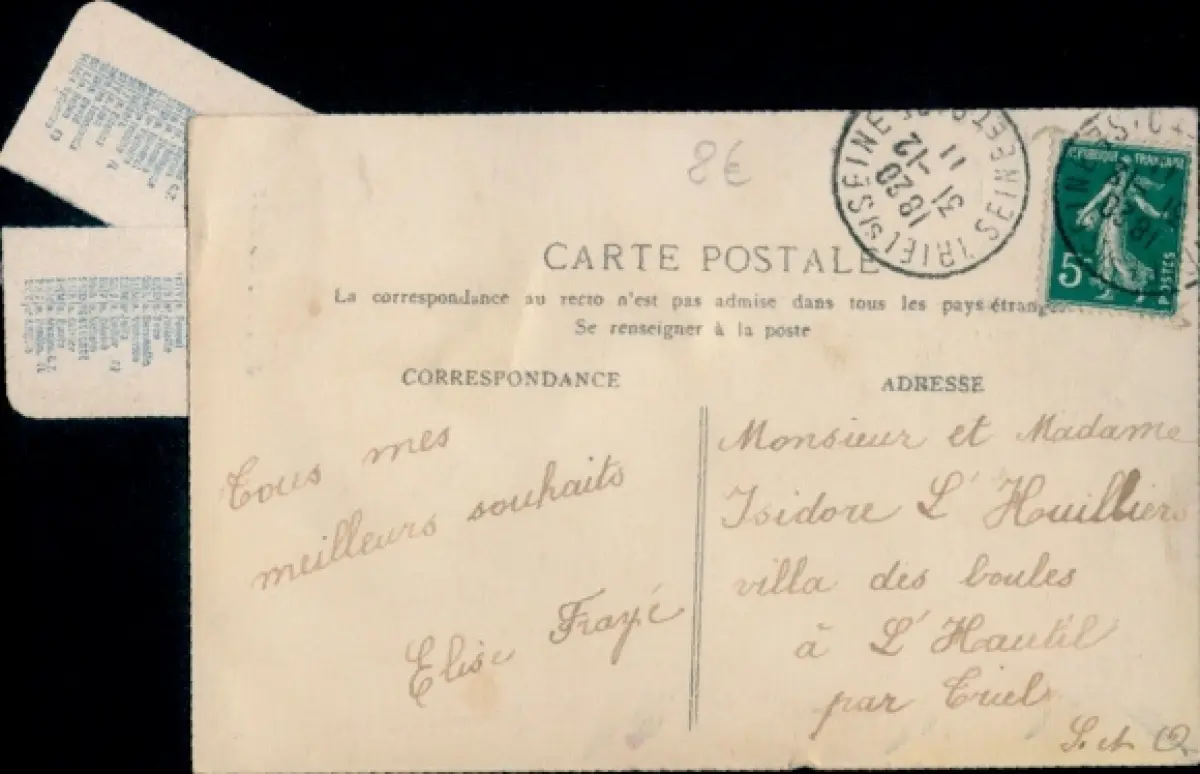 8€
TRIEL S/SEINE
SEINE ET O
18 20
31 -12
11
REPUBLIQUE FRANÇAISE
5c
POSTES
18 20
CARTE POSTALE
La correspondance au recto n'est pas admise dans tous les pays étrangers
Se renseigner à la poste
CORRESPONDANCE
ADRESSE
Tous mes
meilleurs souhaits
Elise Frayé
Monsieur et Madame
Isidore L'Huilliers
villa des boules
à L'Hautil
par Triel
S. et O.